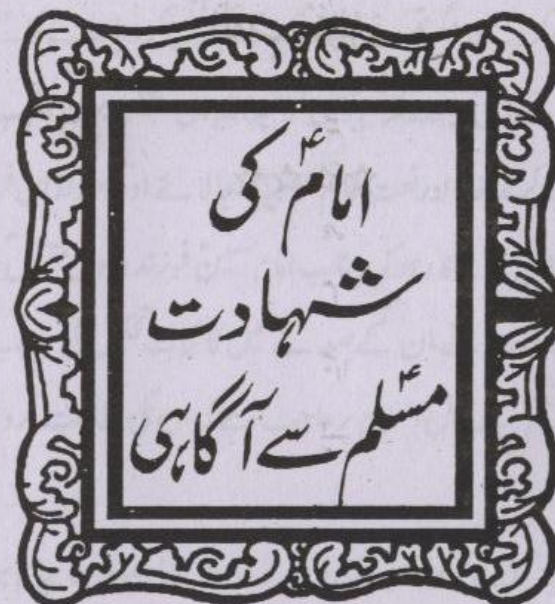 امامؑ کی
شہادت
مسلمؑ سے آگاہی